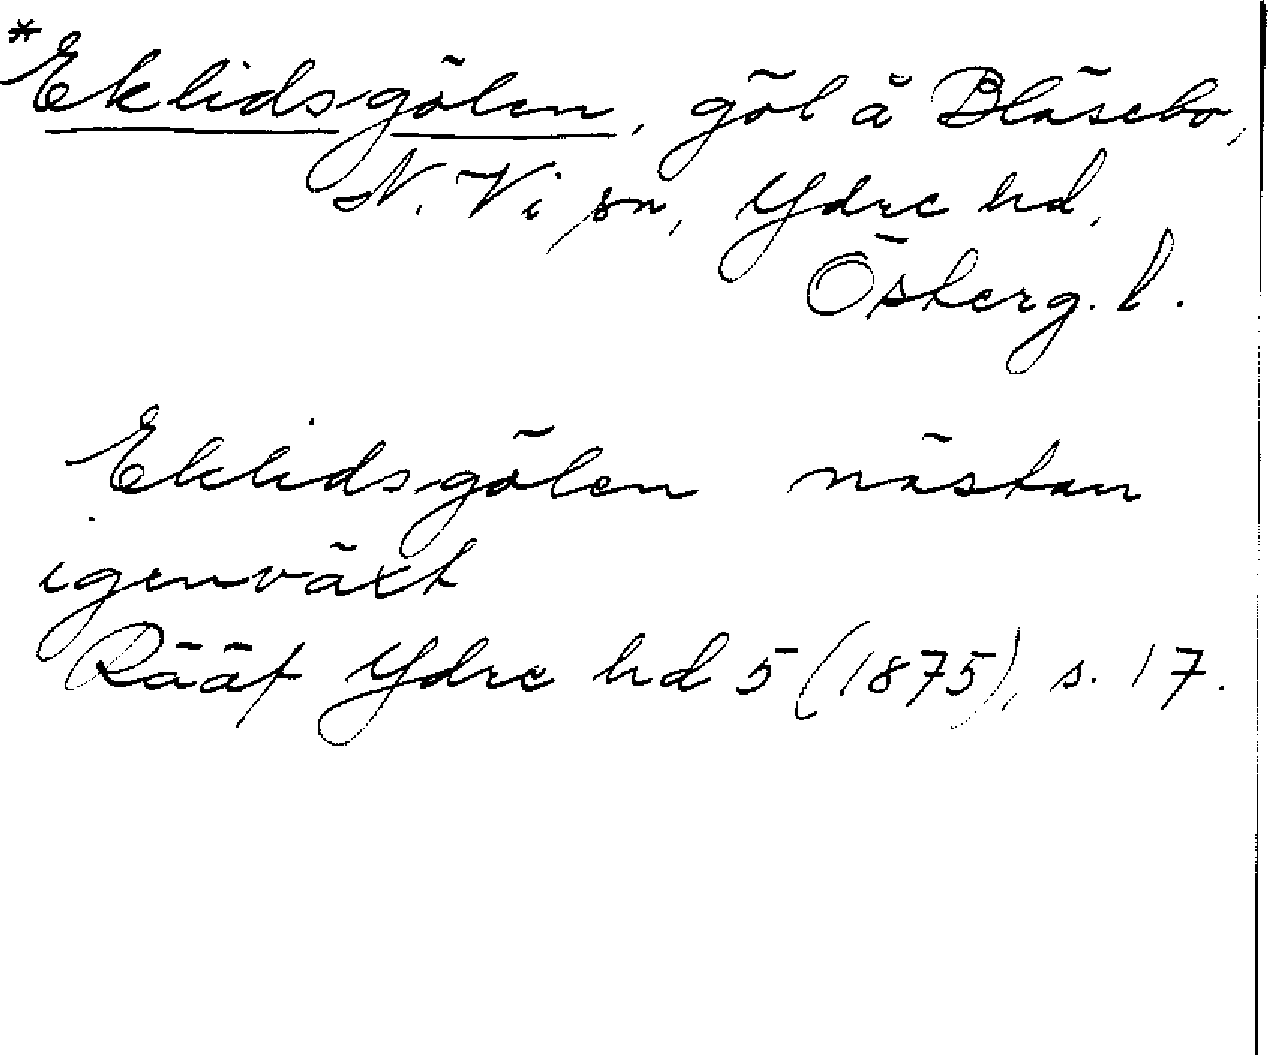 *Eklidsgölen, göl å Bläsebo,
N. Vi sn, Ydre hd,
Österg. l.
Eklidsgölen nästan
igenväxt
Rääf Ydre hd 5 (1875), s. 17.